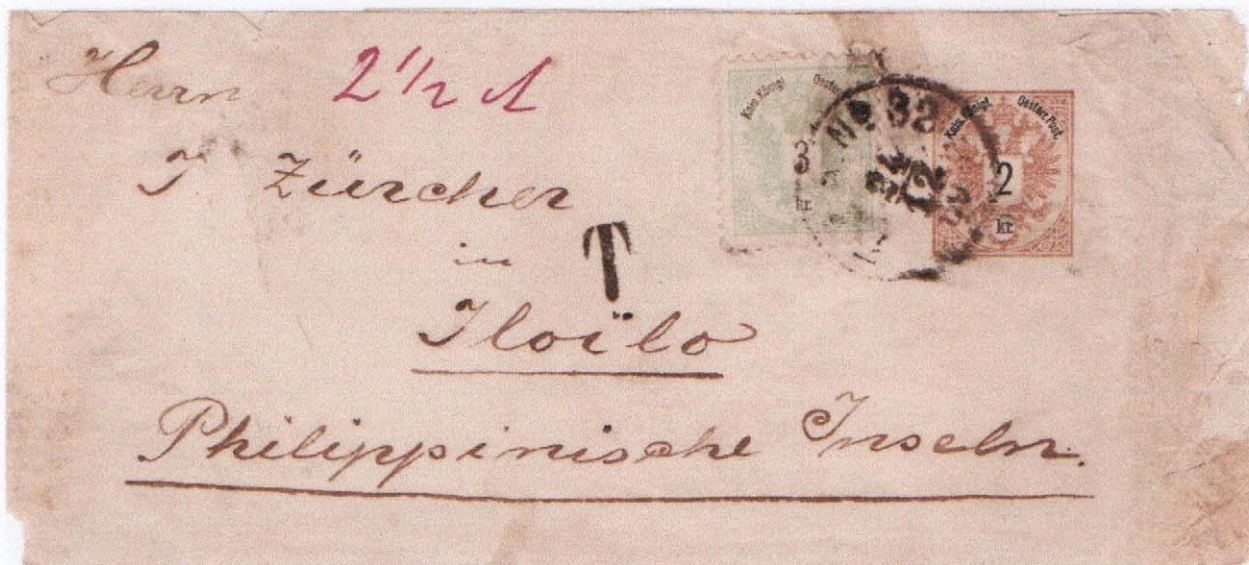 Herrn 2 1/2 d
J. Zürcher
in
T
Iloïlo
Philippinische Inseln.
Kais. Königl. Oesterr.
3
kr.
No 32
12
Kais. Königl. Oesterr. Post.
2
kr.